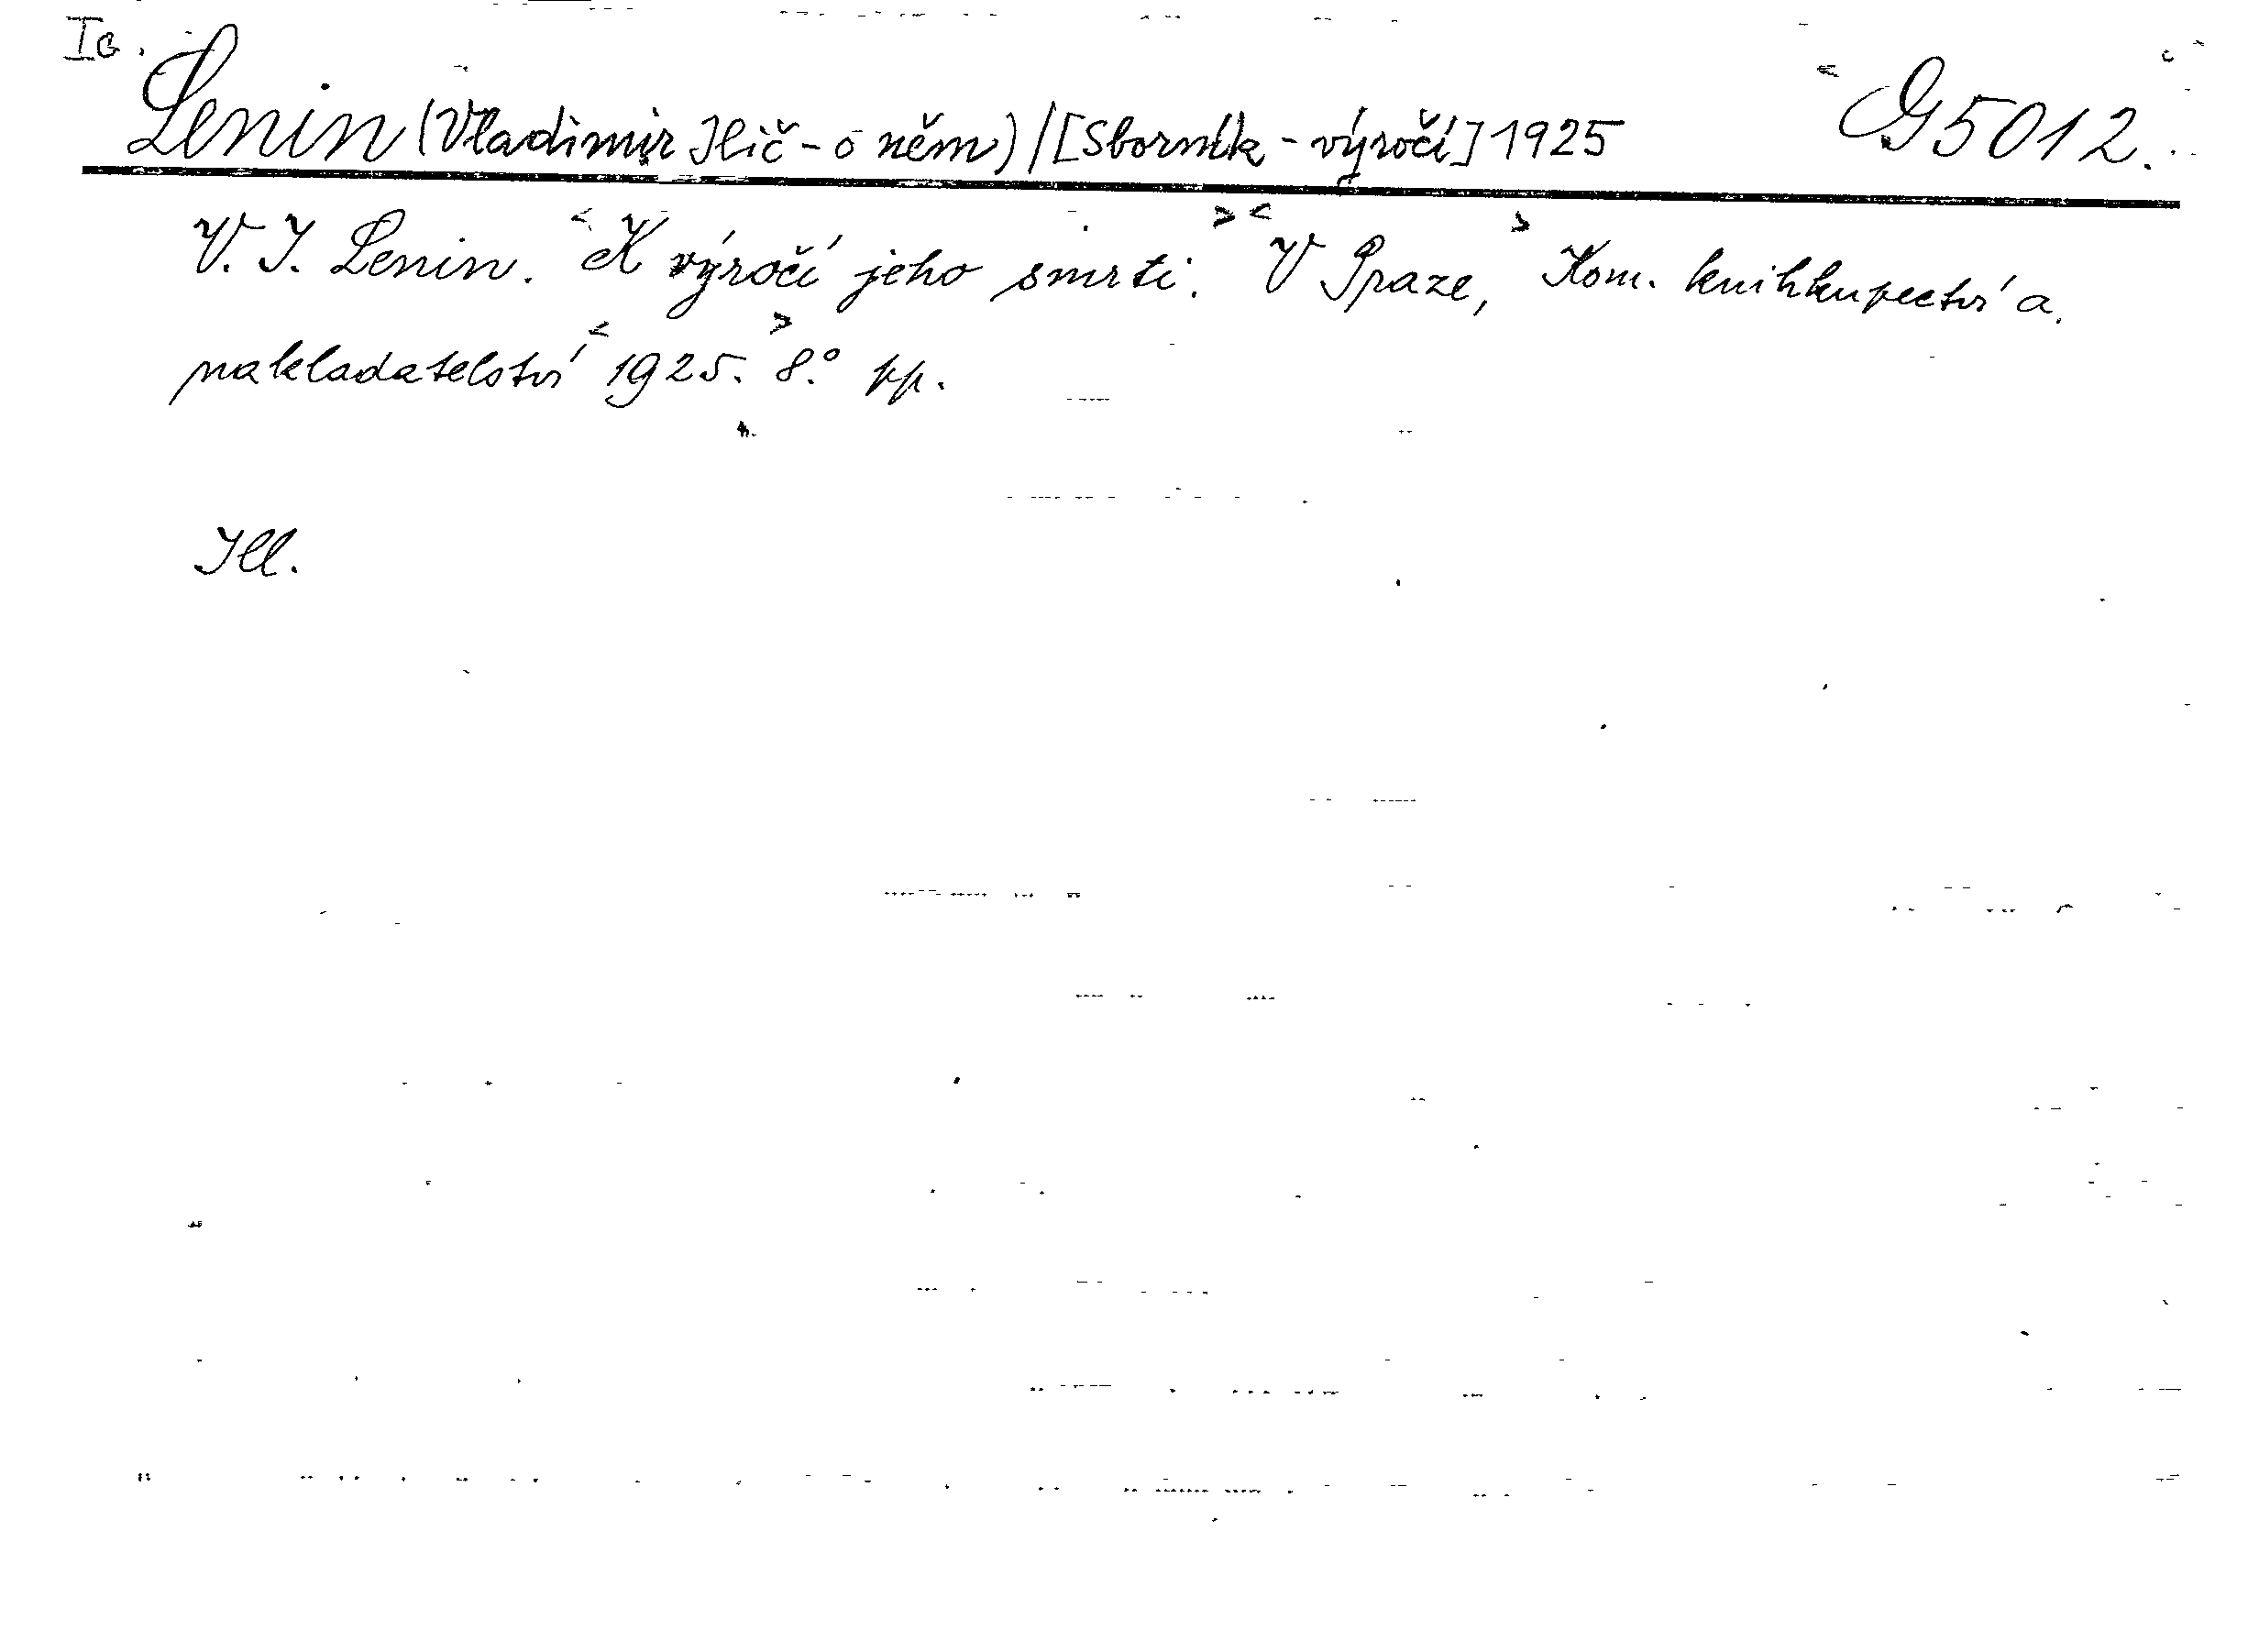 Ic.
Lenin (Vladimir Ilič - o něm) / [Sborník - výročí] 1925 G 5012.
V. I. Lenin. <K výročí jeho smrti.> <V Praze,> Kom. knihkupectví a.
nakladatelství <1925.> 8.° pp.
Ill.